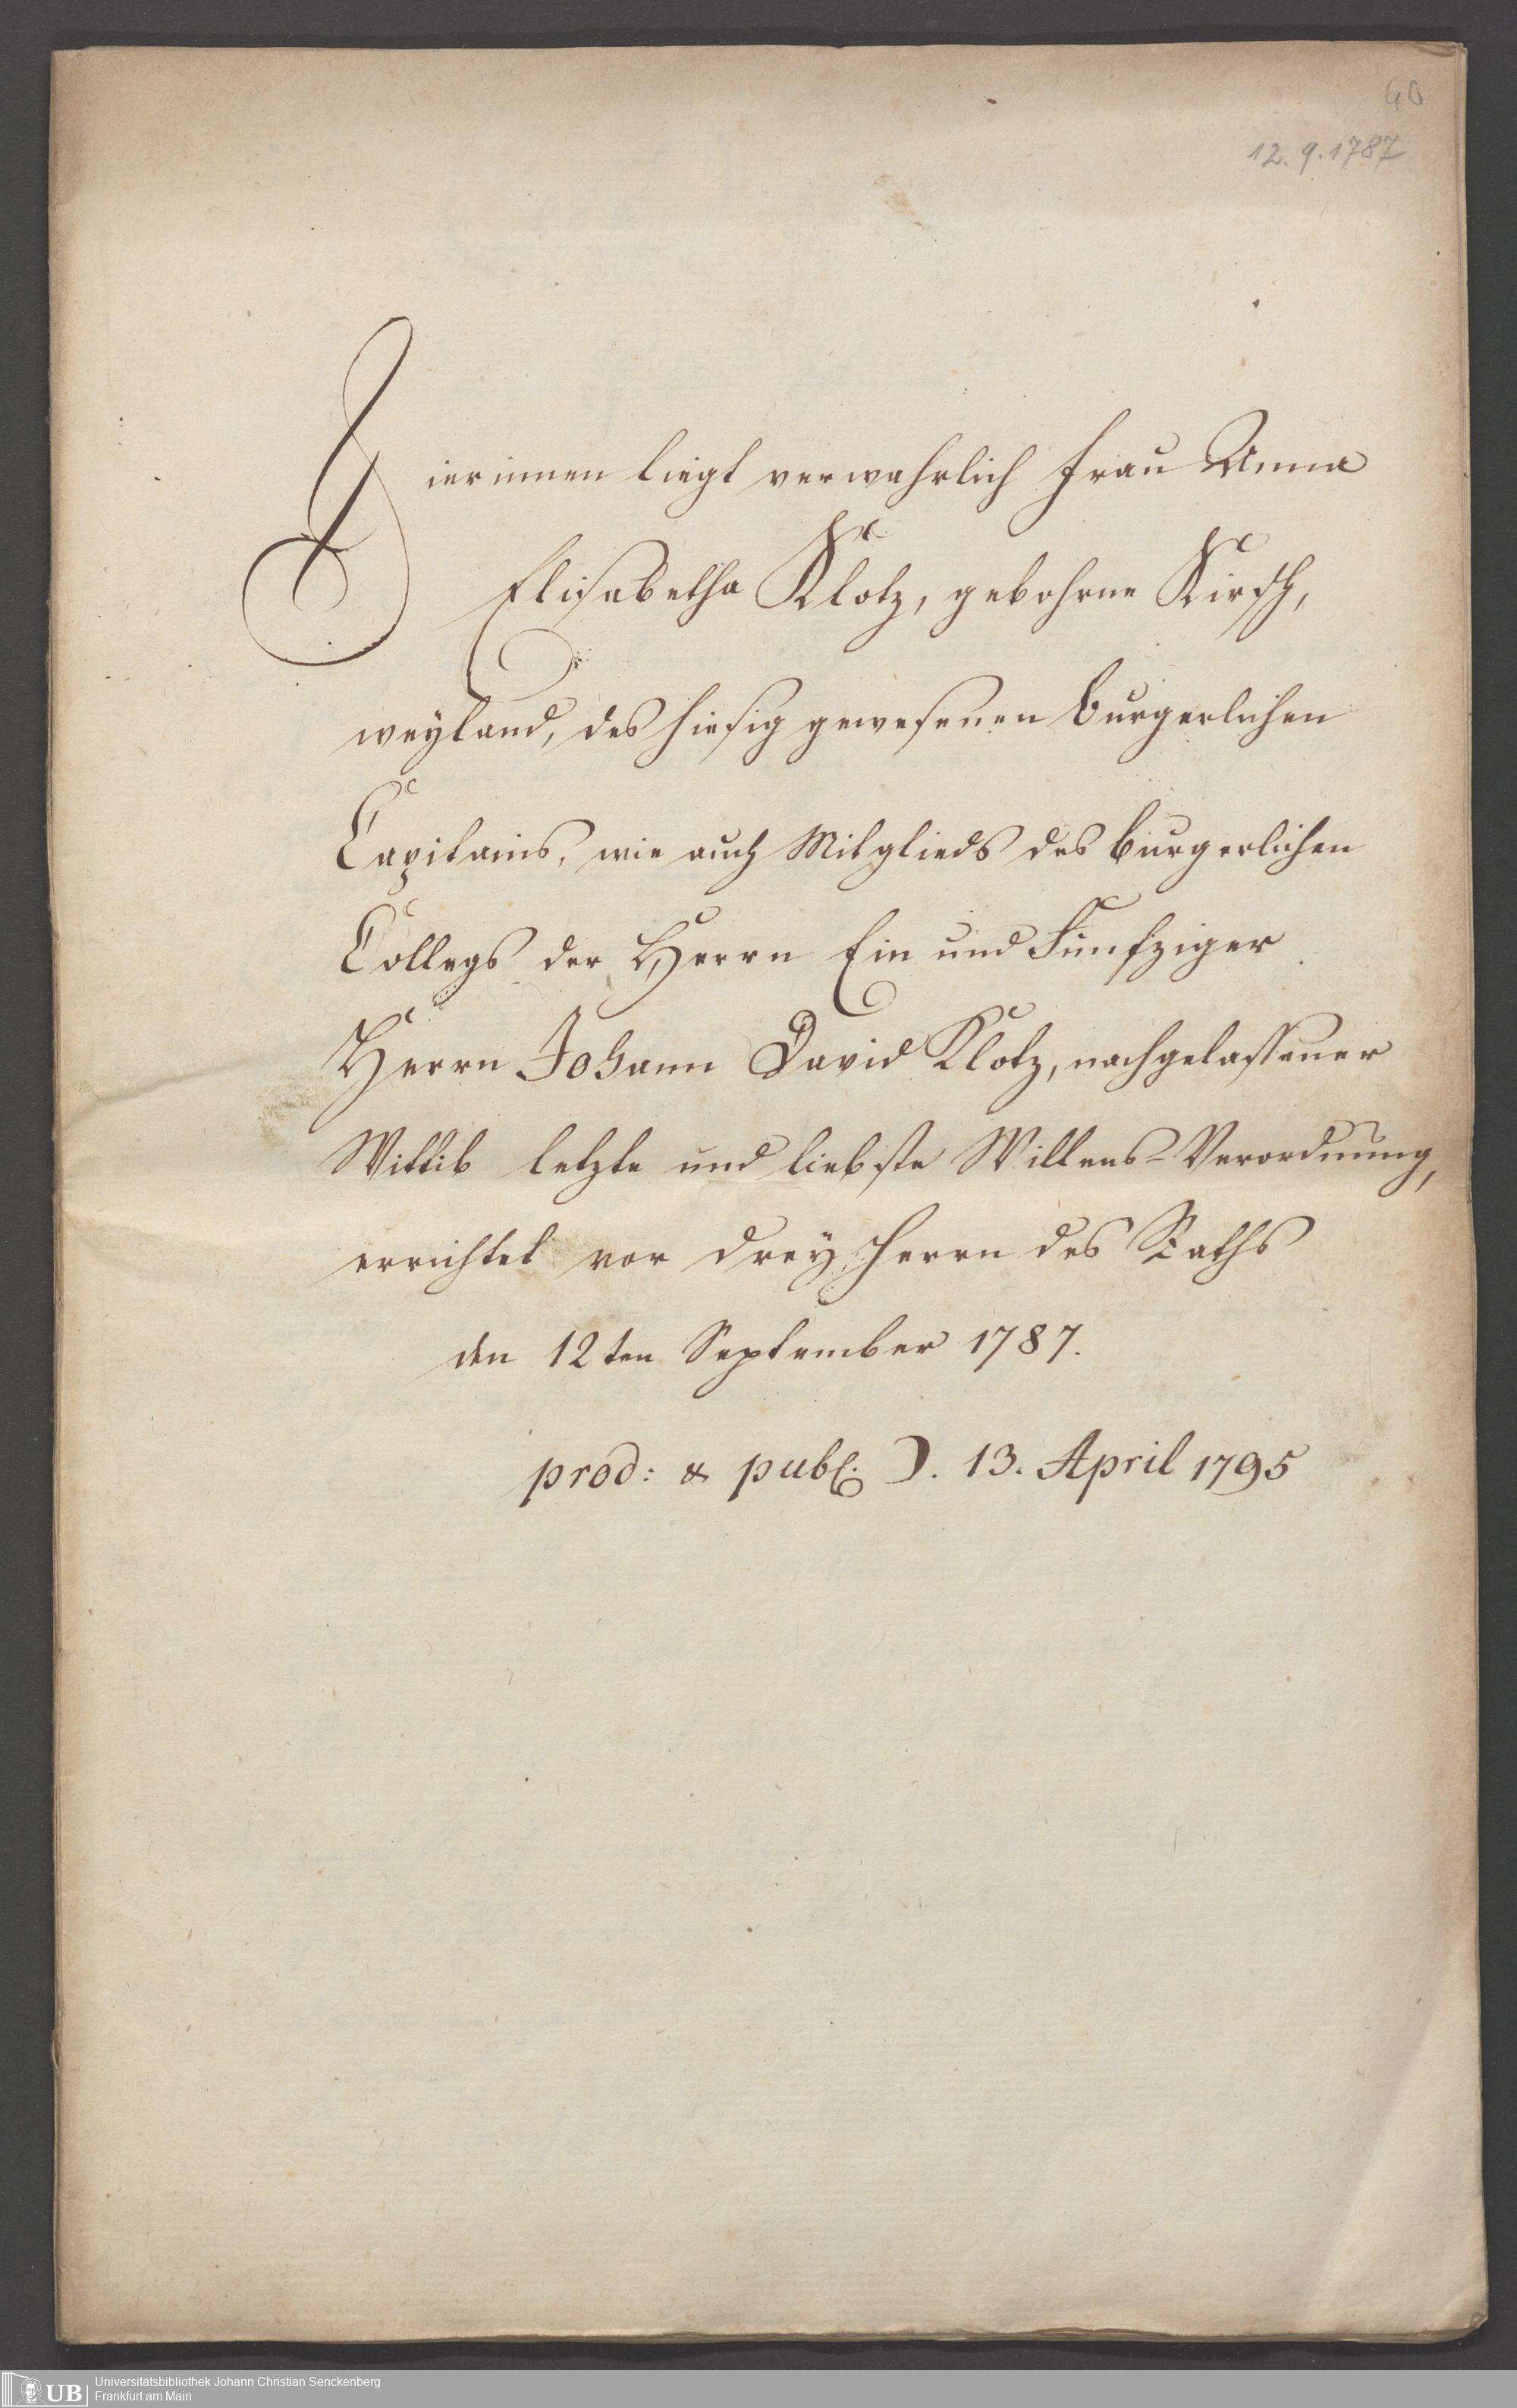 40
12. 9. 1787
Hierinnen liegt verwahrlich Frau Anna
Elisabetha Klotz, gebohrne Kirsch,
weyland, des hiesig gewesenen burgerlichen
Capitains, wie auch Mitglieds des burgerlichen
Collegs der Herrn Ein und Funfziger
Herrn Johann David Klotz, nachgelassener
Wittib letzte und liebste Willens-Verordnung,
errichtet vor drey Herrn des Raths
den 12ten September 1787.
prod: & publ. D. 13. April 1795
UB
Universitätsbibliothek Johann Christian Senckenberg
Frankfurt am Main